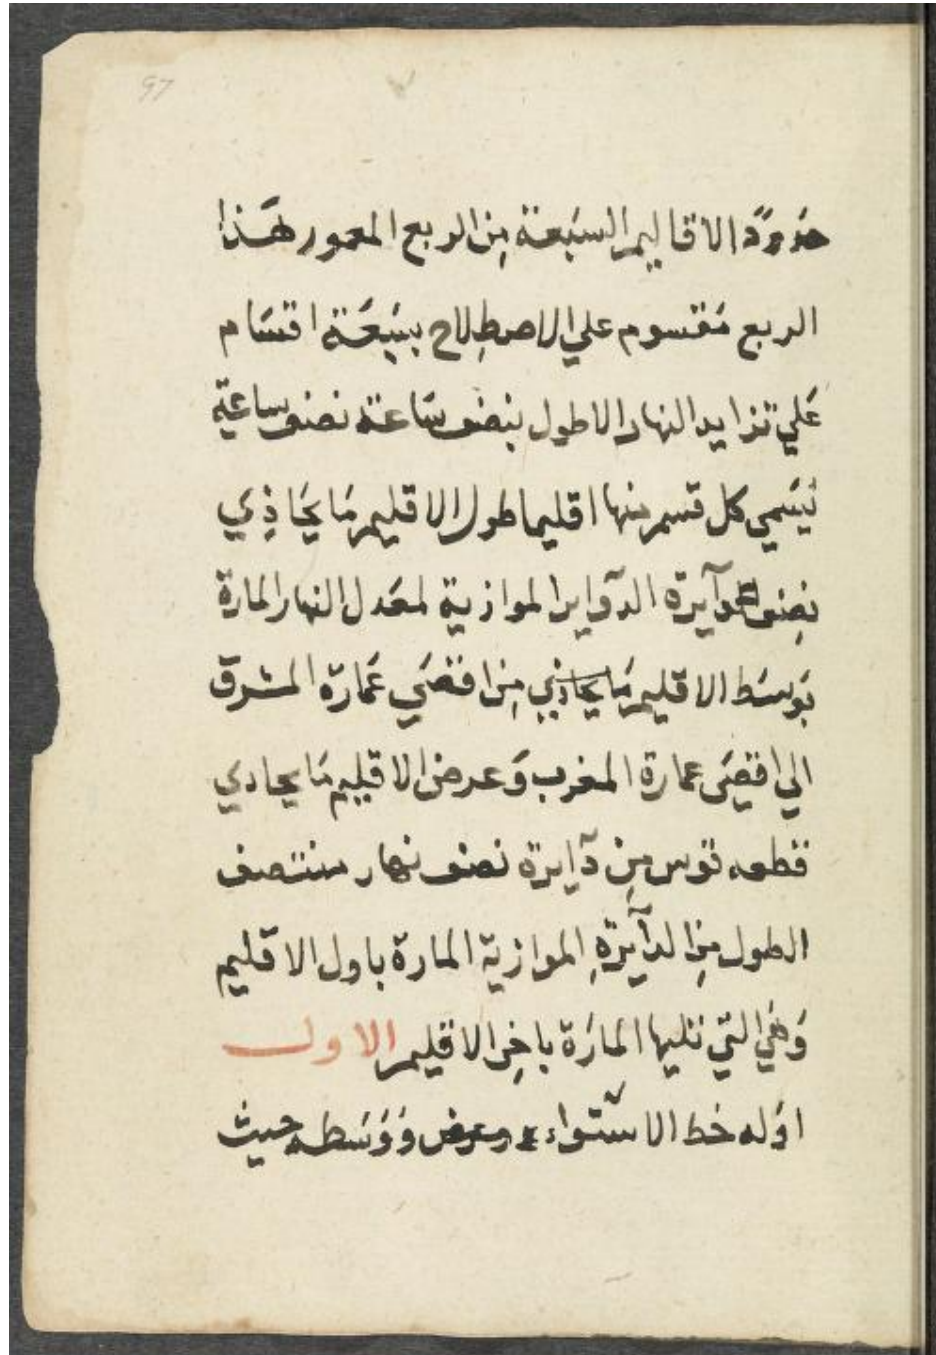 97
حدود الاقاليم السبعة من الربع المعمور هذا
الربع مقسوم علي الاصطلاح بسبعة اقسام
علي تزايد النهار الاطول بنصف ساعة نصف ساعة
يسمي كل قسم منها اقليما طول الاقليم ما يحاذي
نصف دآيرة الدوآير الموازية لمعدل النهار المارة
بوسط الاقليم ما يحاذي من اقصي عمارة المشرق
الي اقصي عمارة المغرب وعرض الاقليم ما يحادي
قطعه قوس من دآيرة نصف نهار منتصف
الطول من الدآيرة الموازية المارة باول الاقليم
وهي التي تليها المارة باخر الاقليم الاول
اوله خط الاستواء ووسطه حيث